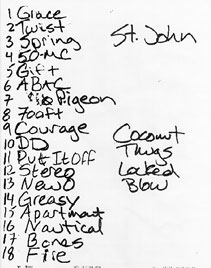 1 Grace
2 Twist
3 Spring
4 50-MC
5 Gift
6 ABAC
7 Pigeon
8 7oaft
9 Courage
10 DD
11 Put It Off
12 Stereo
13 New O
14 Greasy
15 Apartment
16 Nautical
17 Bones
18 Fire
St. John
Coconut
Thugs
Locked
Blow